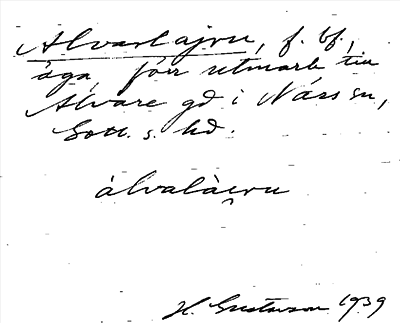 Alvarlajvu, f. bf.,
äga, förr utmark till
Alvare gd i Näs sn,
Gotl. s. hd.
àlvalàe̯vu
H. Gustavson 1939